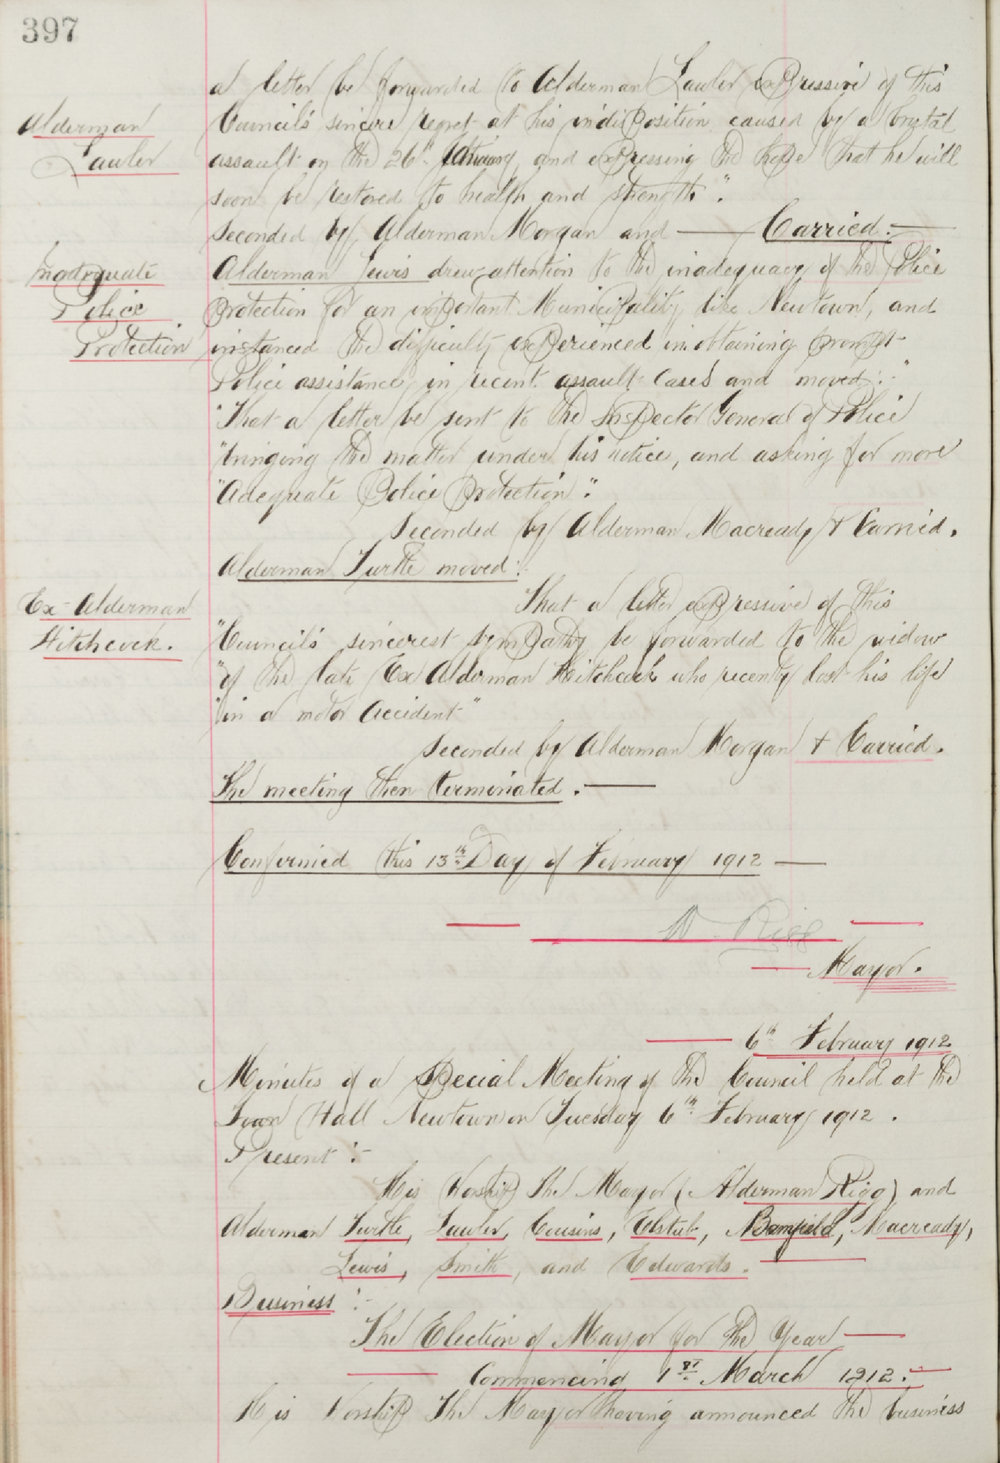 397
a letter be forwarded to Alderman Lawler expressive of this
Alderman
Council's sincere regret at his indisposition caused by a brutal
Lawler
assault on the 26th and expressing the hope that he will
soon be restored to health and strength".
Seconded by Alderman Morgan and — Carried. —
Inadequate
Alderman Lewis drew attention to the inadequacy of the Police
Police
Protection for an important Municipality like Newtown, and
Protection
instanced the difficulty experienced in obtaining prompt
Police assistance in recent assault cases and moved:-
"That a letter be sent to the Inspector General of Police
"bringing the matter under his notice, and asking for more
"Adequate Police Protection".
Seconded by Alderman Macready & Carried.
Alderman Turtle moved:-
Ex-Alderman
That a letter expressive of this
Hitchcock.
"Council's sincerest sympathy be forwarded to the widow
"of the late Ex Alderman Hitchcock who recently lost his life
"in a motor accident"
Seconded by Alderman Morgan & Carried.
The meeting then terminated. —
Confirmed this 13th Day of February 1912 —
W. Rigg
Mayor.
6th February 1912
Minutes of a Special Meeting of the Council held at the
Town Hall Newtown on Tuesday 6th February 1912.
Present:-
His Worship The Mayor (Alderman Rigg) and
Alderman Turtle, Lawler, Cousins, Elstub, Bamfield, Macready,
Lewis, Smith, and Edwards.
Business:-
The Election of Mayor for the Year —
Commencing 1st March 1912:-
His Worship The Mayor having announced the business